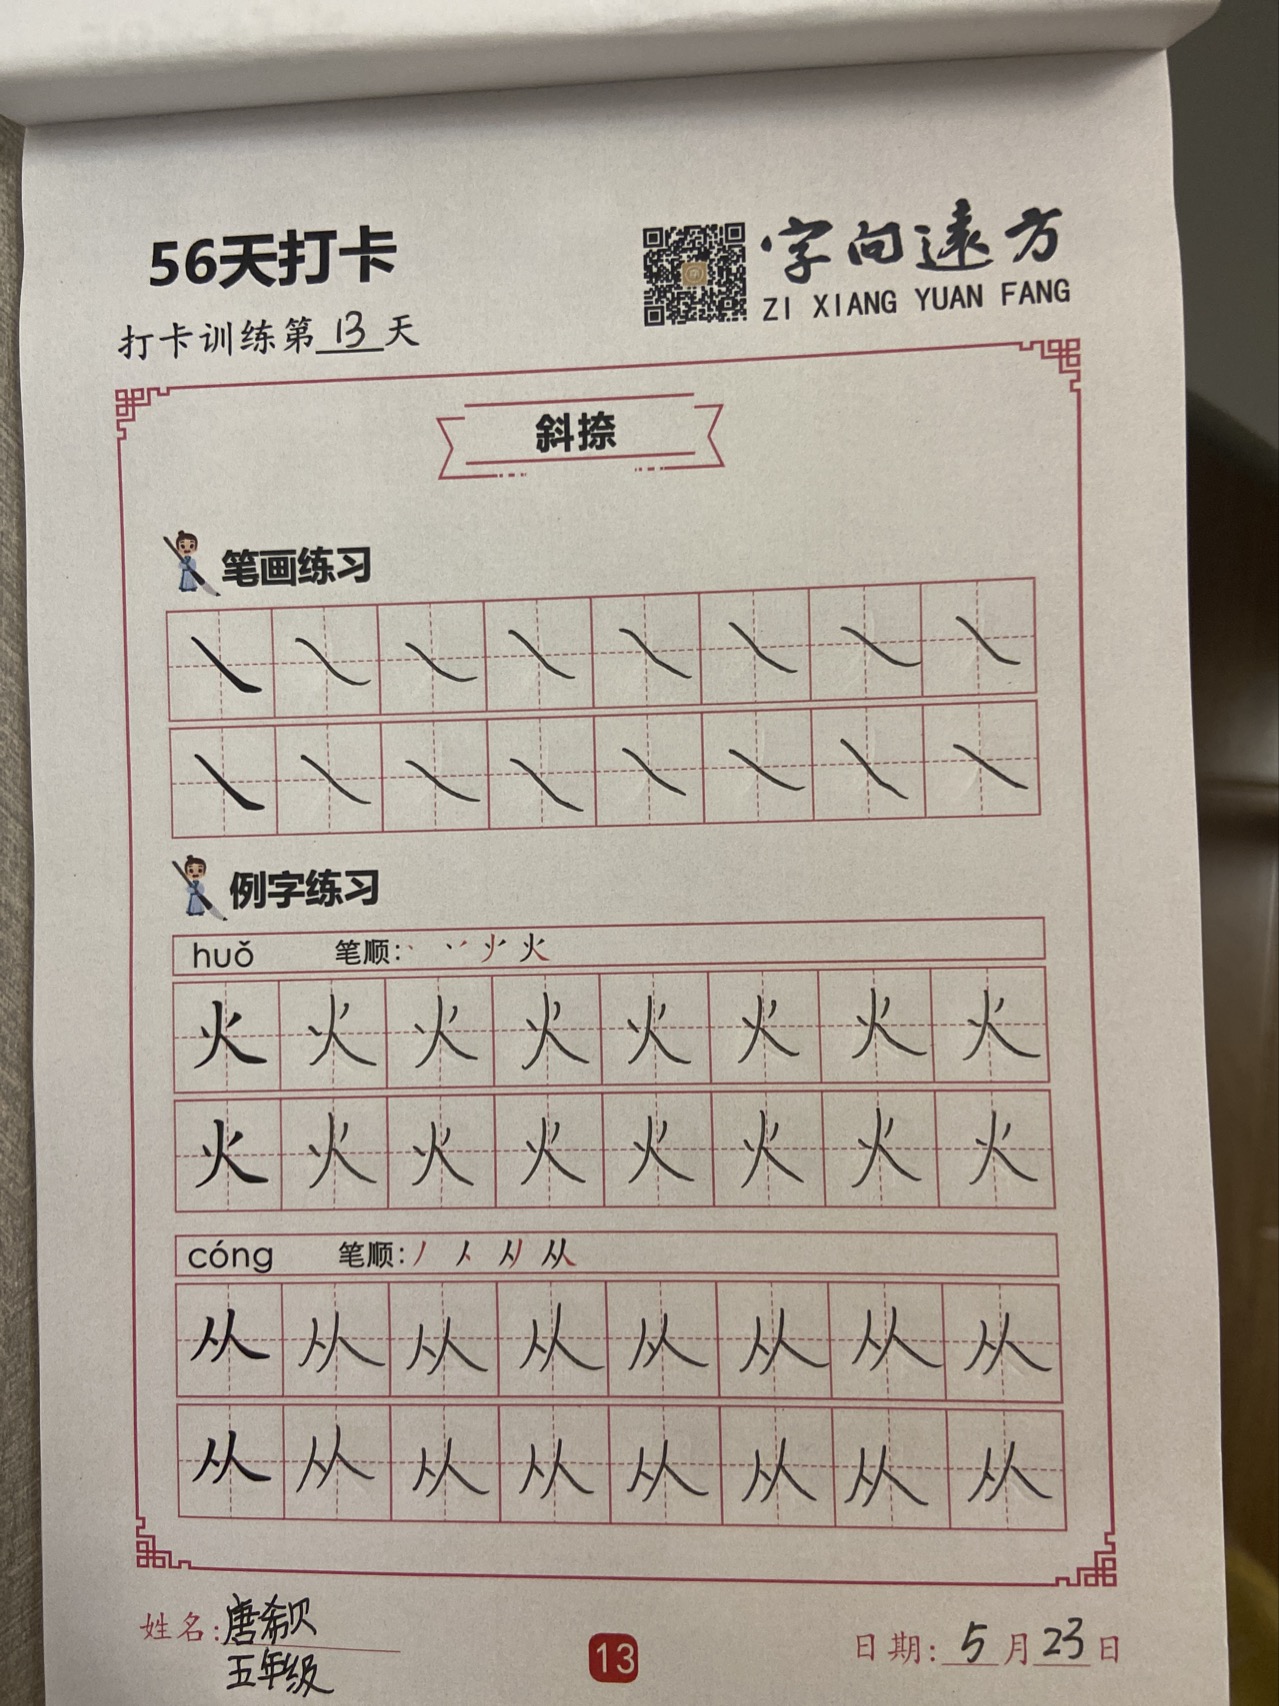 56天打卡
字向遠方
ZI XIANG YUAN FANG
打卡训练第13天
斜捺
笔画练习
例字练习
huǒ 笔顺: 火
火 火 火 火 火 火 火 火
火 火 火 火 火 火 火 火
cóng 笔顺: 丿 人 从
从 从 从 从 从 从 从 从
从 从 从 从 从 从 从 从
姓名:唐希贝
五年级
13
日期:5月23日